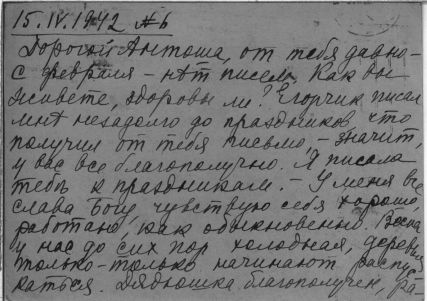 15.IV.1942 № 6
Дорогой Антоша, от тебя давно -
с февраля - нѣт писем. Как вы
живете, здоровы ли? Егорчик писал
мнѣ незадолго до праздников что
получил от тебя письмо, - значит,
у вас все благополучно. Я писала
тебѣ к праздникам. - У меня все
слава Богу, чувствую себя хорошо,
работаю, как обыкновенно. Весна
у нас до сих пор холодная, деревья
только-только начинают распус
каться. Дядюшка благополучен, ра-